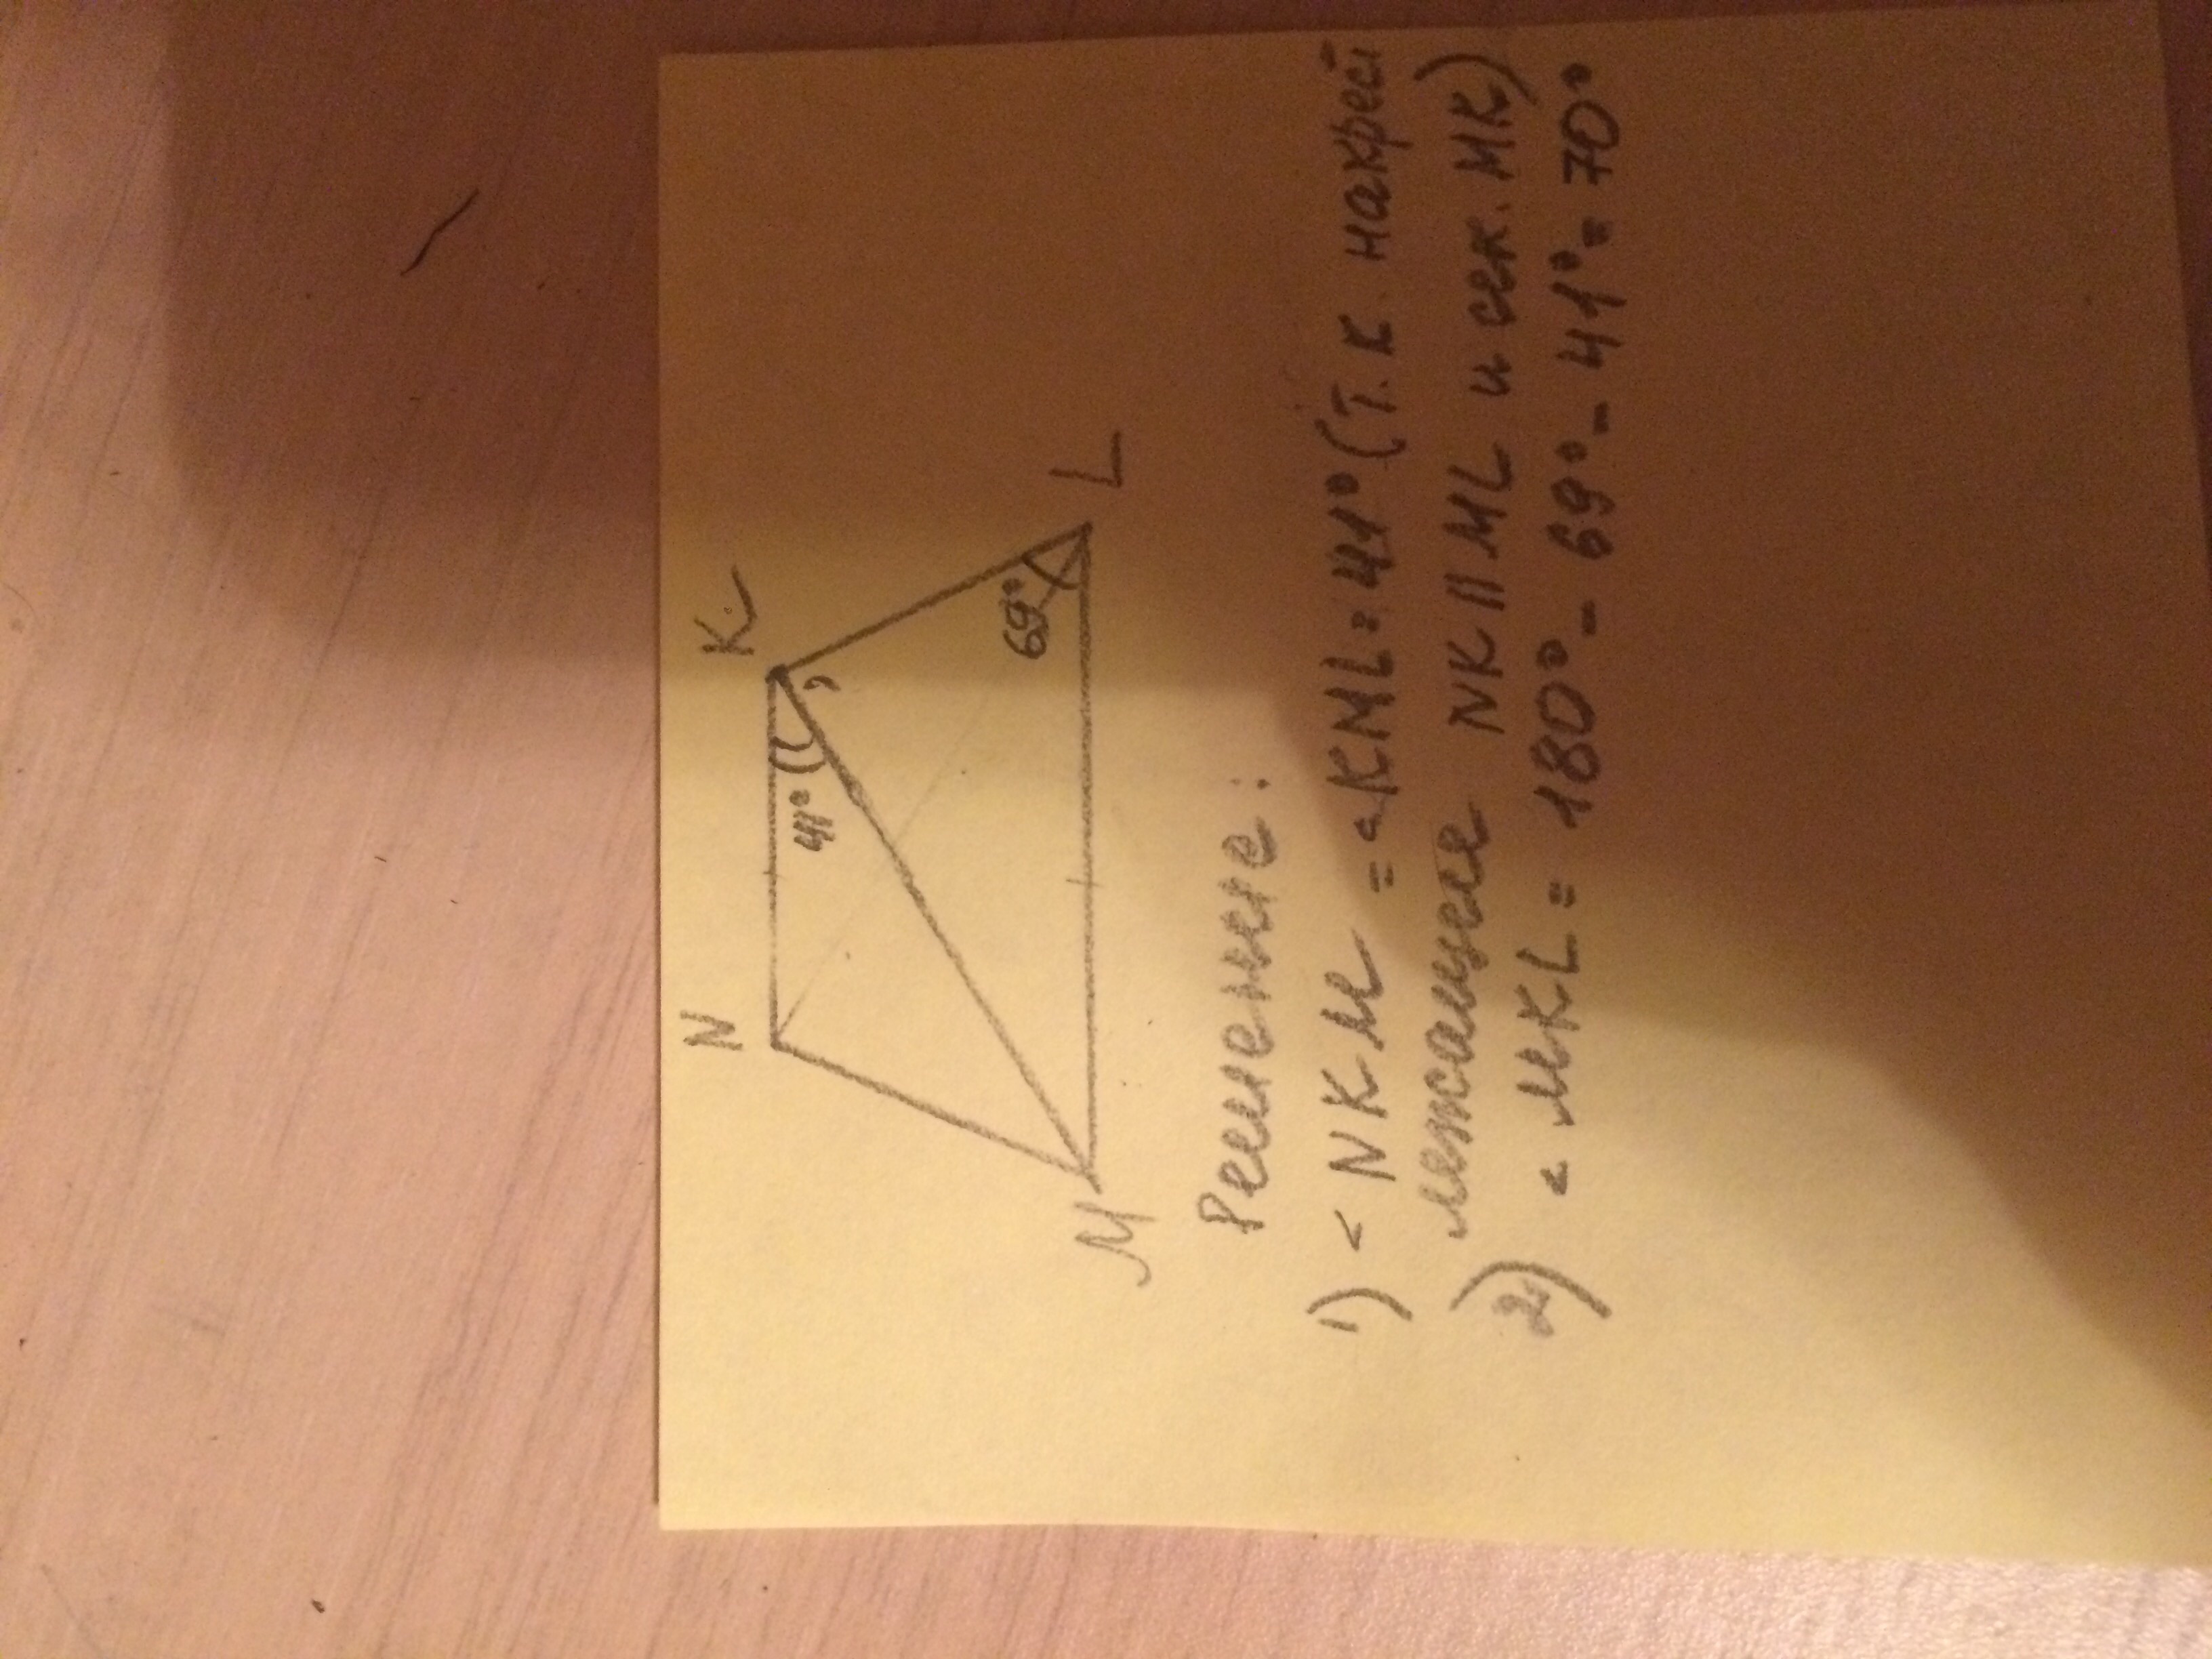 N K
41°
69°
M L
Решение:
1) < NKM = <KML = 41° (т.к. накрест
лежащие NK || ML и сек. MK)
2) < MKL = 180° - 69° - 41° = 70°